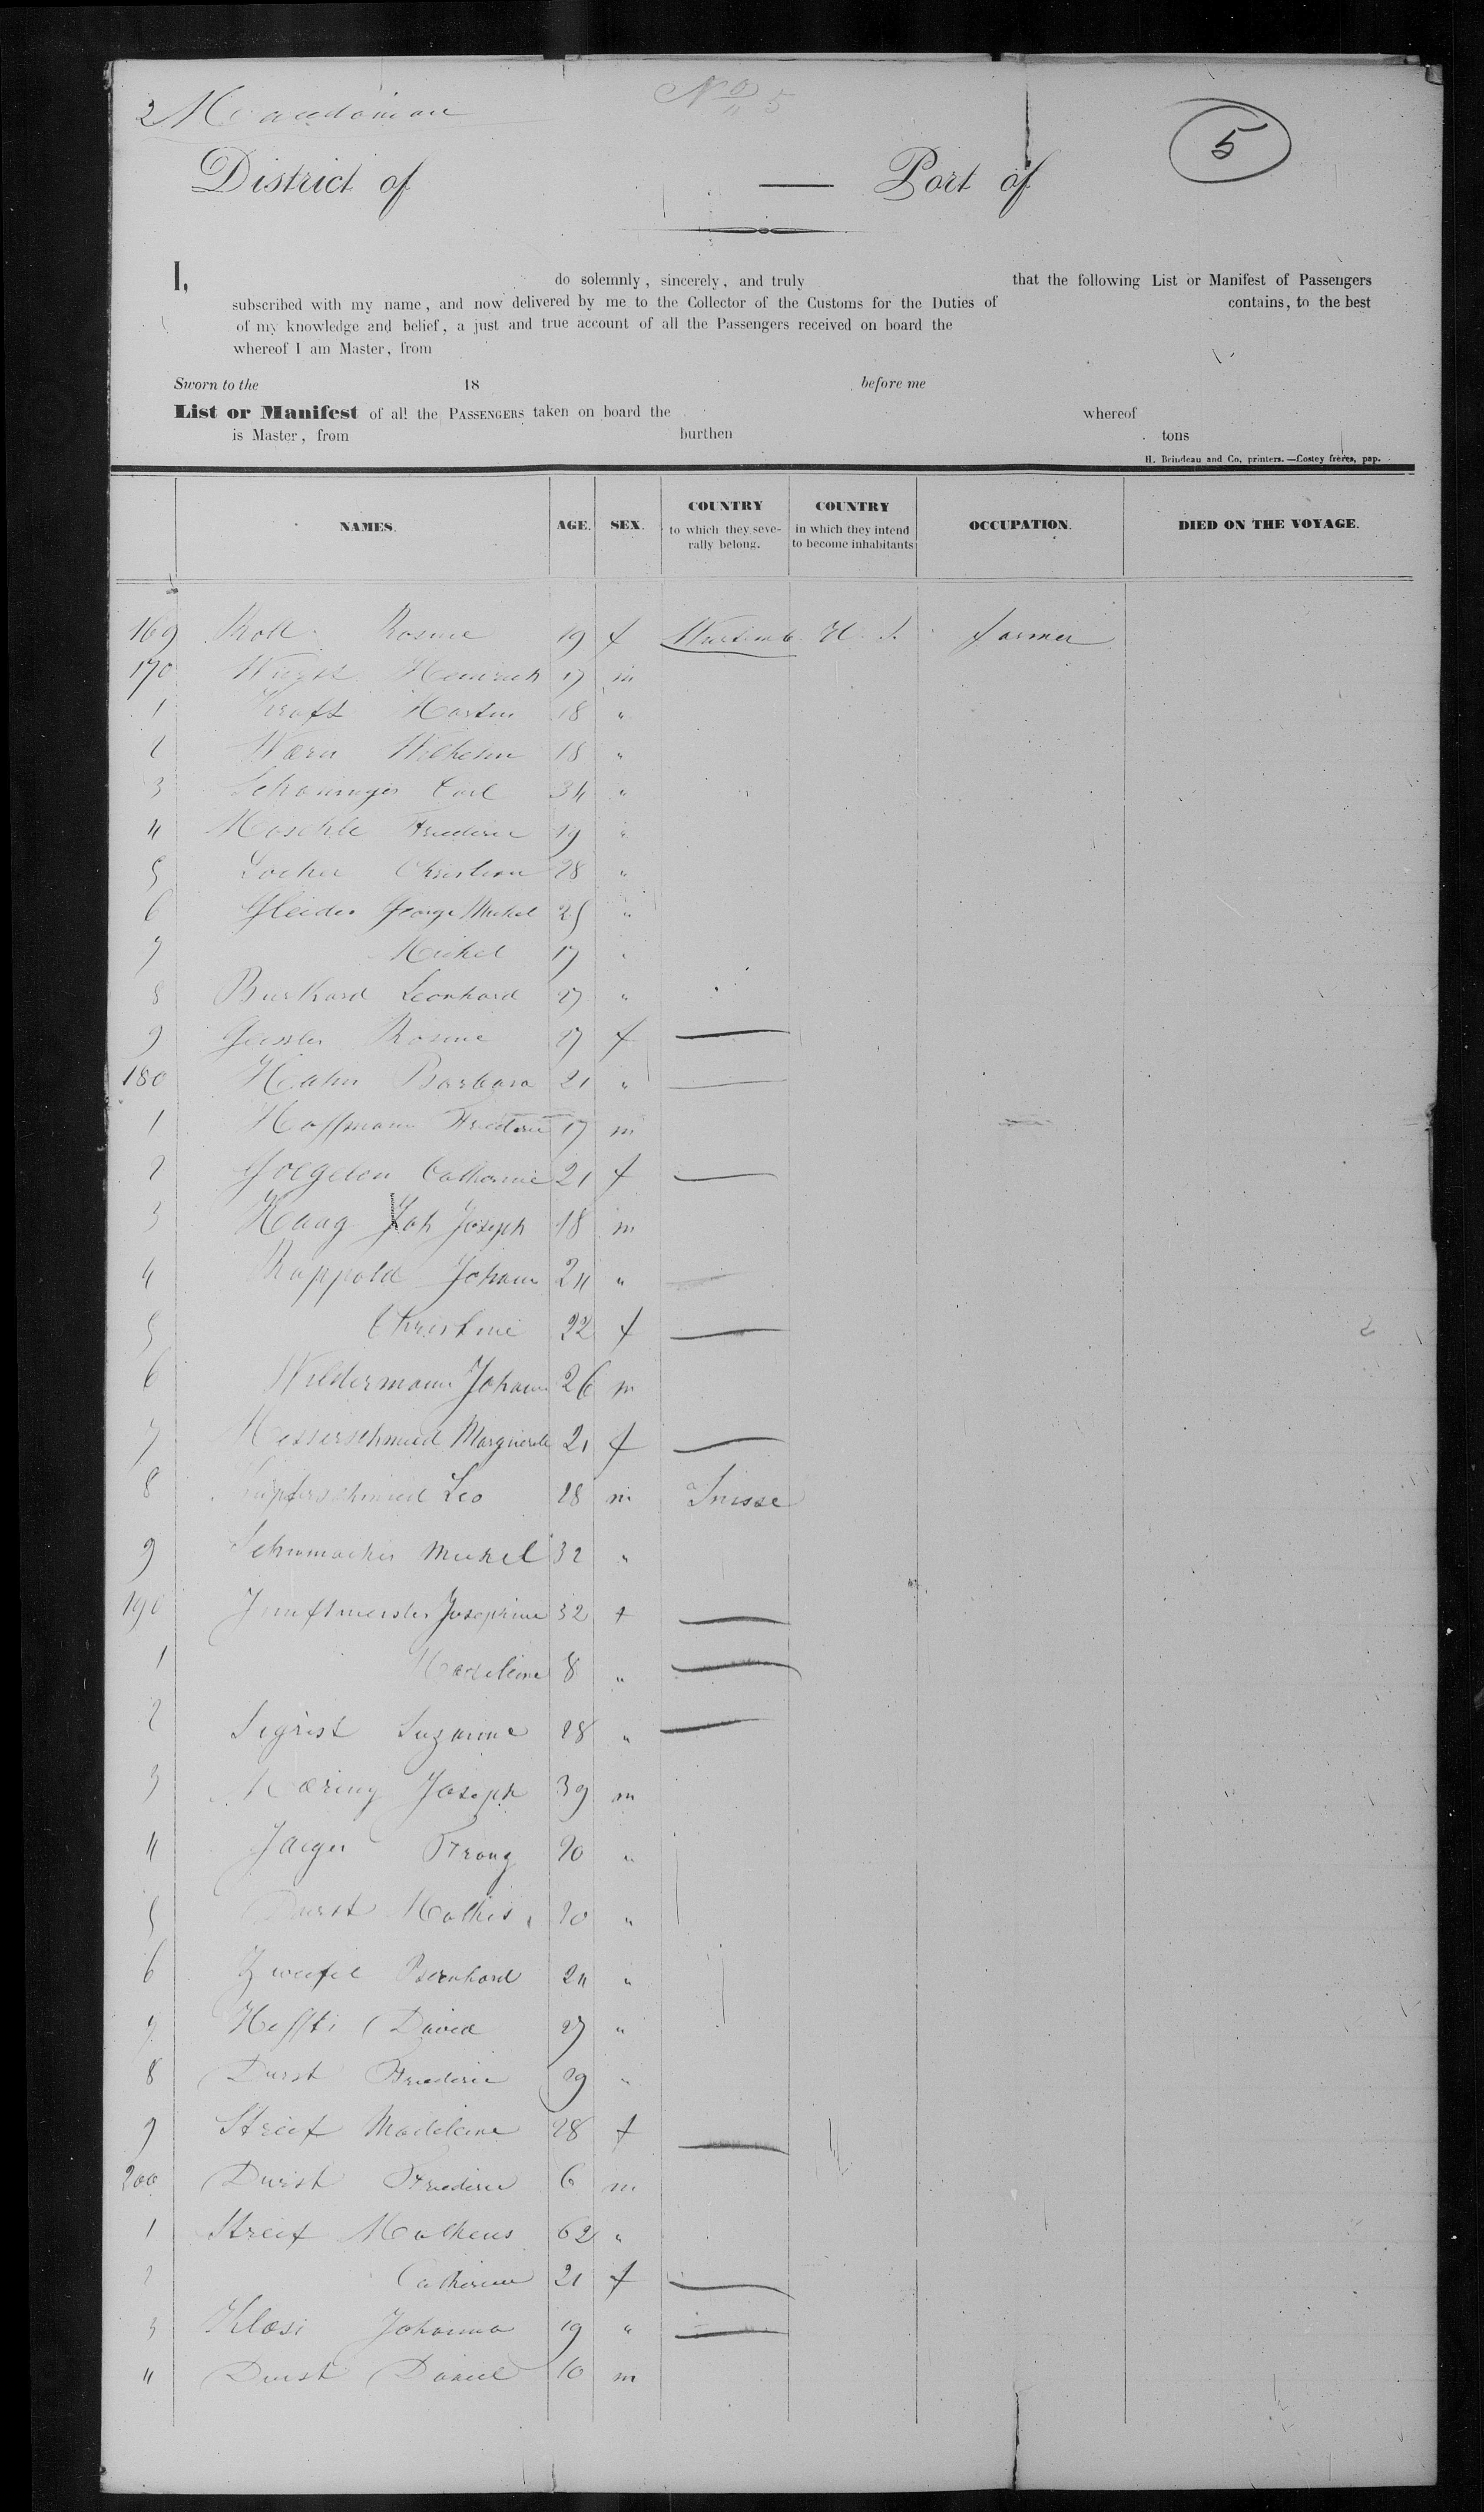 2 Macedonian
No 5
5
District of — Port of
I, do solemnly, sincerely, and truly that the following List or Manifest of Passengers
subscribed with my name, and now delivered by me to the Collector of the Customs for the Duties of contains, to the best
of my knowledge and belief, a just and true account of all the Passengers received on board the
whereof I am Master, from
Sworn to the 18 before me
List or Manifest of all the PASSENGERS taken on board the whereof
is Master, from burthen tons
H. Brindeau and Co, printers.—Costey frères, pap.
NAMES. AGE. SEX. COUNTRY to which they severally belong. COUNTRY in which they intend to become inhabitants OCCUPATION. DIED ON THE VOYAGE.
169 Roll Rosine 19 f Wurtemb U. S. farmer
170 Wurst Heinrich 17 m
1 Kraft Martin 18 "
2 Wilhelm 18 "
3 Carl 34 "
4 Friederic 19 "
5 Locher Christian 28 "
6 George Michel 25 "
7 Michel 17 "
8 Burkard Leonhard 27 "
9 Geissler Rosine 17 f —
180 Hahn Barbara 21 " —
1 Hoffmann Friederic 17 m
2 Catharine 21 f —
3 Haag Joh Joseph 18 m
4 Rappold Johann 24 "
5 Christine 22 f —
6 Wildermann Johann 26 m
7 Messerschmied Marguerite 21 f —
8 Leo 28 m Suisse
9 Schumacher Michel 32 "
190 Zunftmeister Josephine 32 f —
1 Madeleine 8 " —
2 Sigrist Suzanne 28 " —
3 Joseph 39 m
4 Jaeger Franz 20 "
5 Durst Mathis 20 "
6 Zweifel Bernhard 24 "
7 Heffti David 27 "
8 Durst Friederic 29 "
9 Streif Madeleine 28 f —
200 Durst Friederic 6 m
1 Streif Matheus 62 "
2 Catherine 21 f —
3 Klasi Johanna 19 " —
4 Durst Daniel 10 m